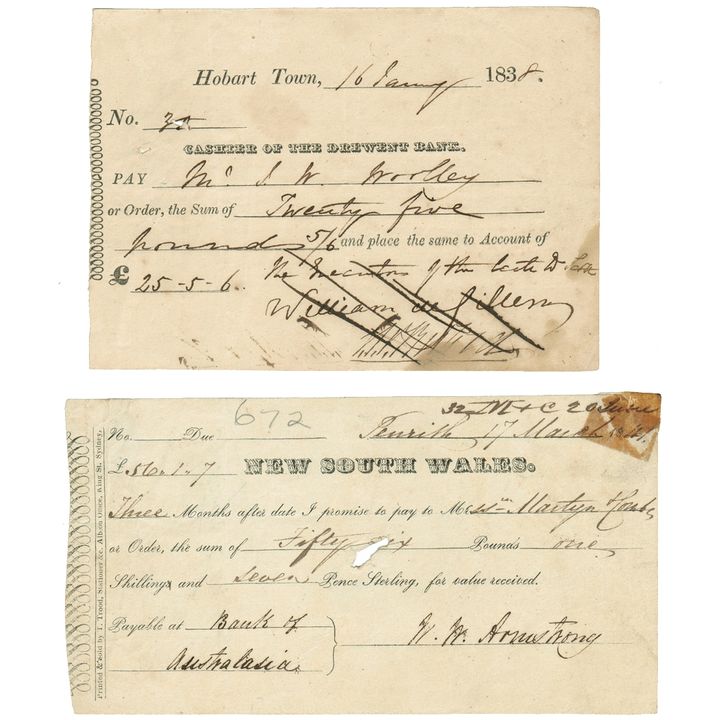 Hobart Town, 16 Jany 1838.
No. 30
CASHIER OF THE DREWENT BANK.
PAY Mr. J. W. Woolley
or Order, the Sum of Twenty five
pounds 5/6 and place the same to Account of
£ 25-5-6. The Executors of the late D
William de Gillern
672
32 M & C 20 June
No. Due Penrith 17 March
£56.1.7 NEW SOUTH WALES.
Three Months after date I promise to pay to Messrs Martyn & Combe
or Order, the sum of Fifty six Pounds one
Shillings and seven Pence Sterling, for value received.
Payable at Bank of
Australasia. W. W. Armstrong
Printed & Sold by T. Trood, Stationer &c. Albion Office, King St. Sydney.